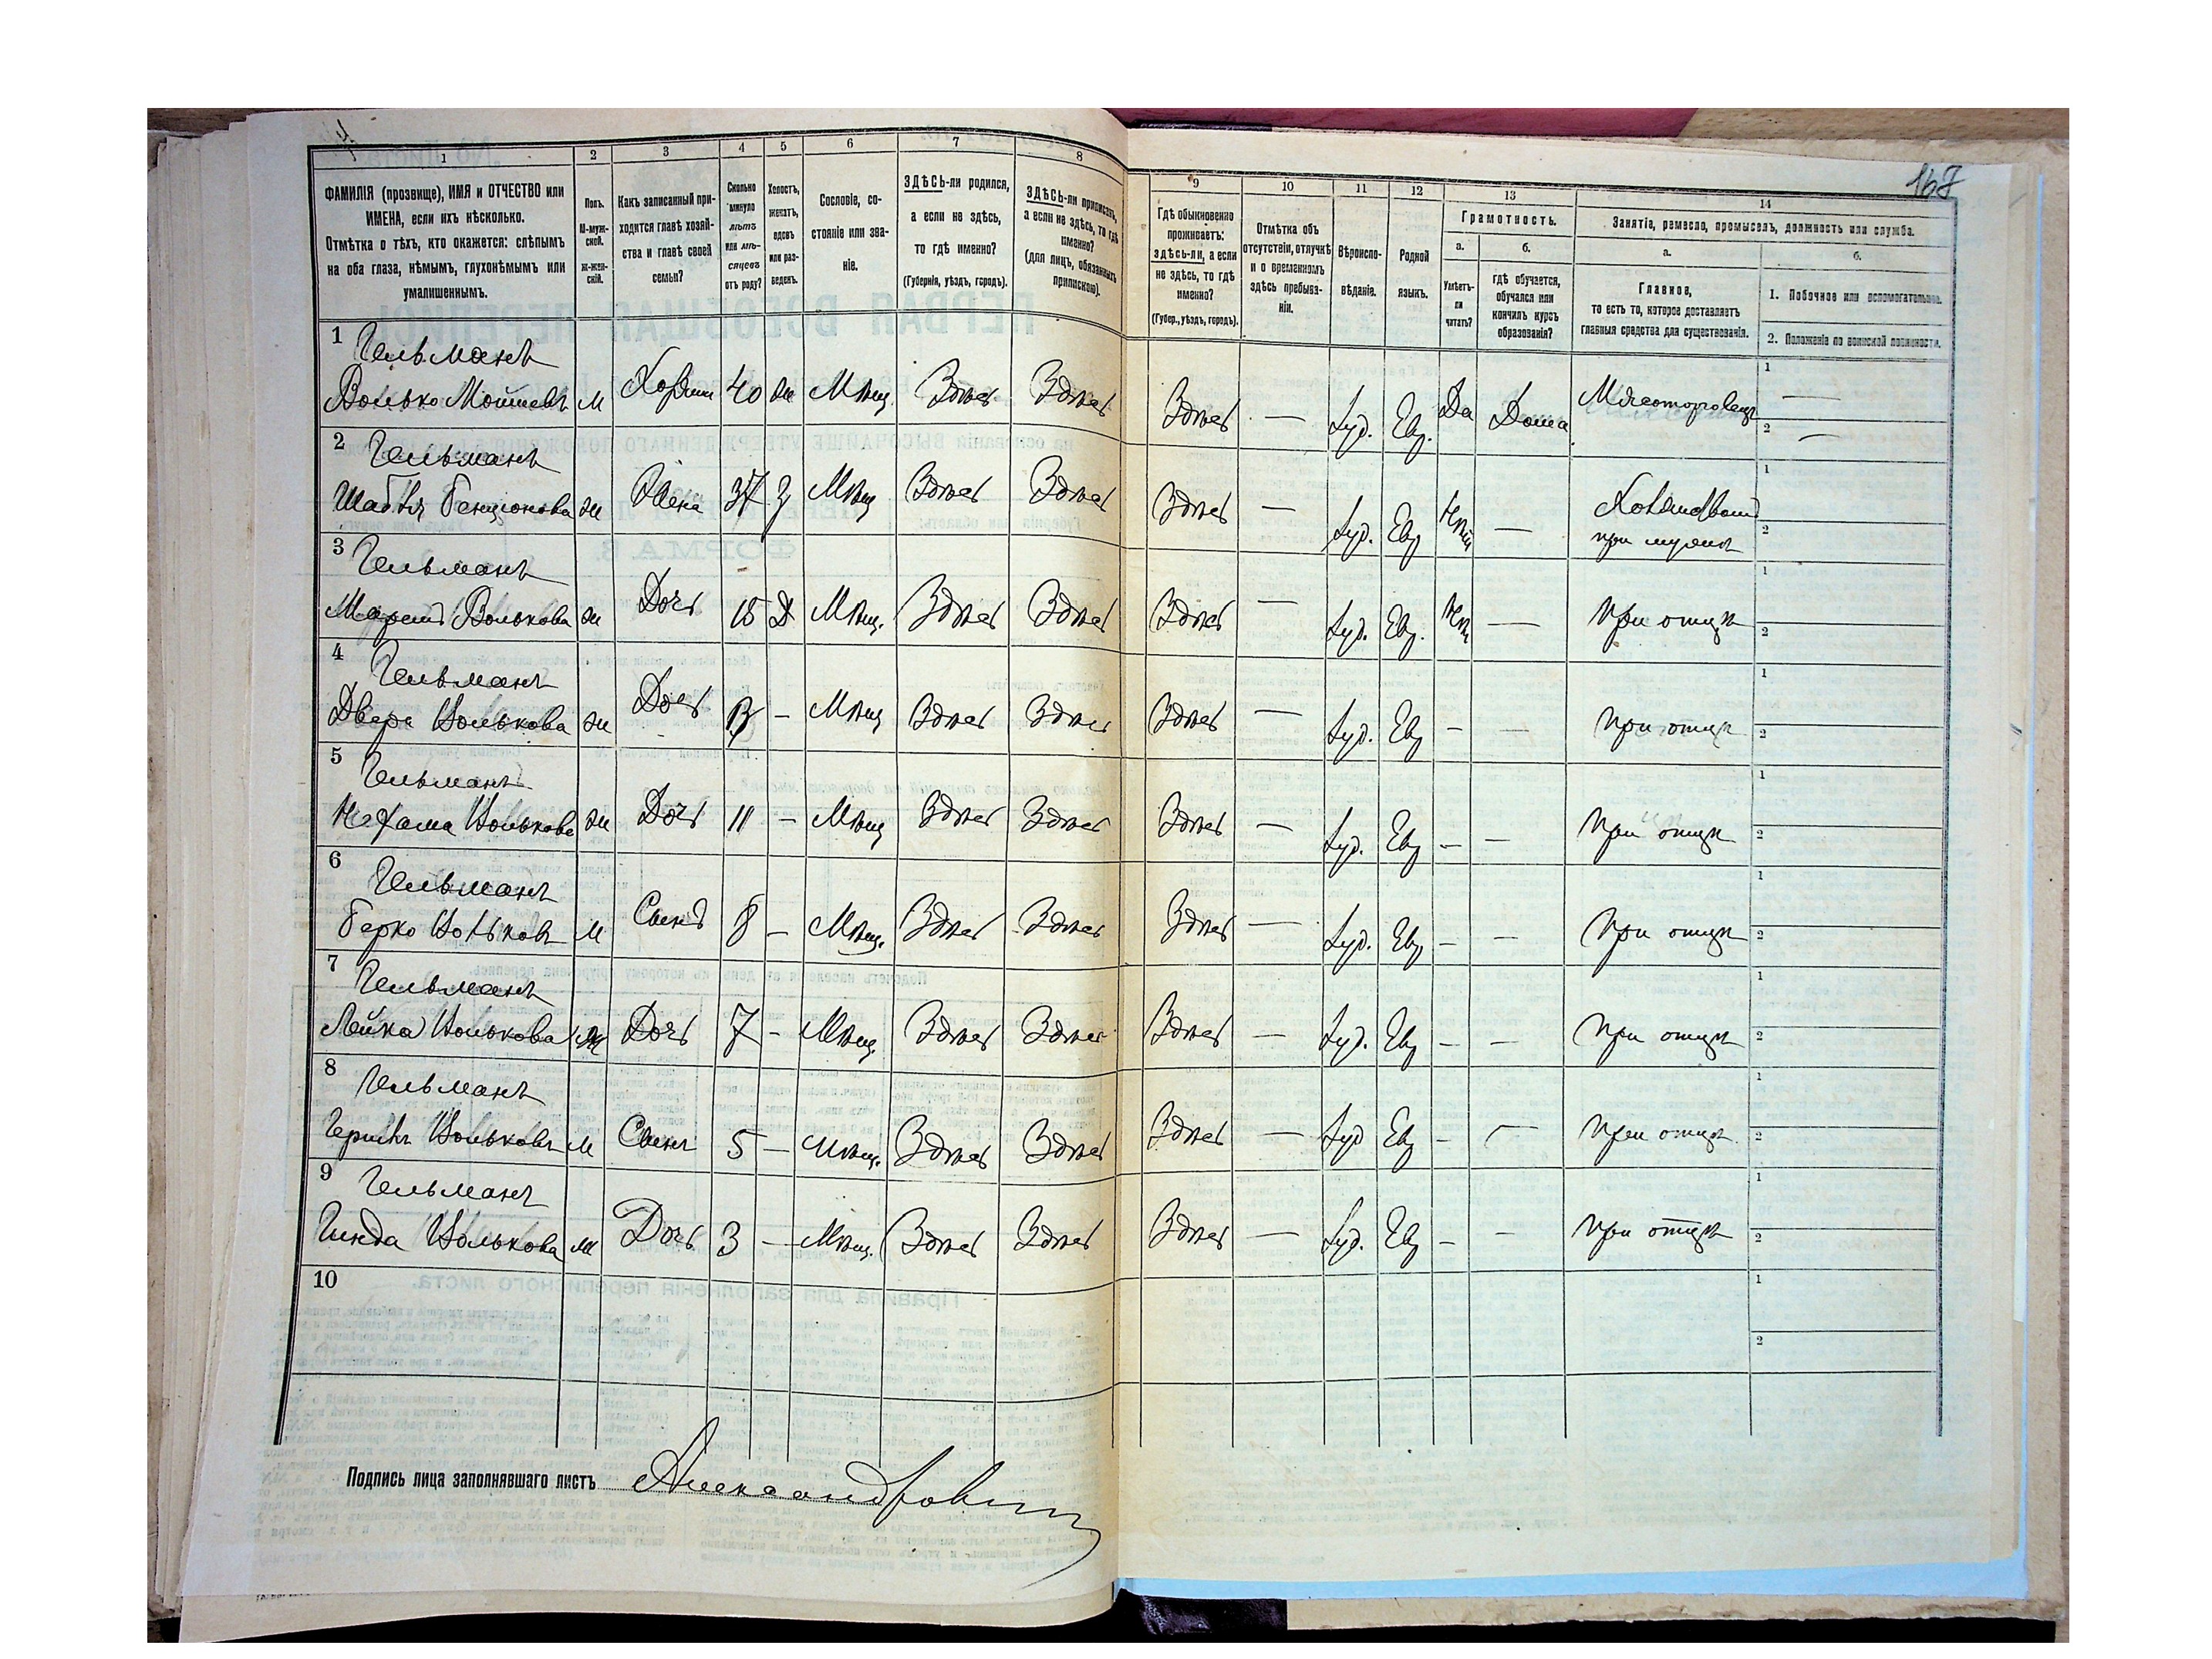 167
1 2 3 4 5 6 7 8
ФАМИЛІЯ (прозвище), ИМЯ и ОТЧЕСТВО или ИМЕНА, если ихъ нѣсколько.
Отмѣтка о тѣхъ, кто окажется: слѣпымъ на оба глаза, нѣмымъ, глухонѣмымъ или умалишеннымъ.
Полъ. М-мужской. ж-женскій.
Какъ записанный приходится главѣ хозяйства и главѣ своей семьи?
Сколько минуло лѣтъ или мѣсяцевъ отъ роду?
Холостъ, женатъ, вдовъ или разведенъ.
Сословіе, состояніе или званіе.
ЗДѢСЬ-ли родился, а если не здѣсь, то гдѣ именно?
(Губернія, уѣздъ, городъ).
ЗДѢСЬ-ли приписанъ, а если не здѣсь, то гдѣ именно?
(для лицъ, обязанныхъ припискою).
9 10 11 12 13 14
Гдѣ обыкновенно проживаетъ: здѣсь-ли, а если не здѣсь, то гдѣ именно?
(Губер., уѣздъ, городъ).
Отмѣтка объ отсутствіи, отлучкѣ и о временномъ здѣсь пребываніи.
Вѣроисповѣданіе.
Родной языкъ.
Грамотность.
а. б.
Умѣетъ-ли читать?
гдѣ обучается, обучался или кончилъ курсъ образованія?
Занятіе, ремесло, промыселъ, должность или служба.
а. б.
Главное,
то есть то, которое доставляетъ главныя средства для существованія.
1. Побочное или вспомогательное.
2. Положеніе по воинской повинности.
1 Гельманъ
Волько Мошковъ М Хозяинъ 40 ж Мѣщ. Здѣсь Здѣсь Здѣсь — Іуд. Евр. Да Дома Мясоторговецъ 1 — 2 —
2 Гельманъ
Бенціонова ж Жена 37 з Мѣщ Здѣсь Здѣсь Здѣсь — Іуд. Евр Нѣтъ — при мужѣ 1 2
3 Гельманъ
Волькова ж Дочь 15 Д Мѣщ. Здѣсь Здѣсь Здѣсь — Іуд. Евр. Нѣтъ — При отцѣ 1 2
4 Гельманъ
Двера Волькова ж Дочь 13 — Мѣщ Здѣсь Здѣсь Здѣсь — Іуд. Евр — — При отцѣ 1 2
5 Гельманъ
Нехама Волькова ж Дочь 11 — Мѣщ Здѣсь Здѣсь Здѣсь — Іуд. Евр — — При отцѣ 1 2
6 Гельманъ
Берко Вольковъ М Сынъ 8 — Мѣщ. Здѣсь Здѣсь Здѣсь — Іуд. Евр — — При отцѣ 1 2
7 Гельманъ
Лейка Волькова ж Дочь 7 — Мѣщ. Здѣсь Здѣсь Здѣсь — Іуд. Евр — — При отцѣ 1 2
8 Гельманъ
Гершъ Вольковъ М Сынъ 5 — Мѣщ. Здѣсь Здѣсь Здѣсь — Іуд Евр — — При отцѣ 1 2
9 Гельманъ
Гинда Волькова ж Дочь 3 — Мѣщ. Здѣсь Здѣсь Здѣсь — Іуд. Евр — — При отцѣ 1 2
10 1 2
Подпись лица заполнявшаго листъ Александрович